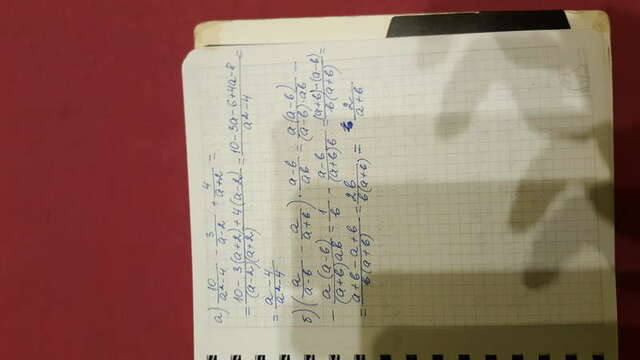 а) 10/(a²-4) - 3/(a-2) + 4/(a+2) =
= (10-3(a+2)+4(a-2))/((a-2)(a+2)) = (10-3a-6+4a-8)/(a²-4) =
= (a-4)/(a²-4)
б) (a/(a-b) - a/(a+b)) · (a-b)/(ab) = (a(a-b))/((a-b)·ab) -
- (a(a-b))/((a+b)ab) = 1/b - (a-b)/((a+b)b) = ((a+b)-(a-b))/(b(a+b)) =
= (a+b-a+b)/(b(a+b)) = 2b/(b(a+b)) = 2/(a+b)